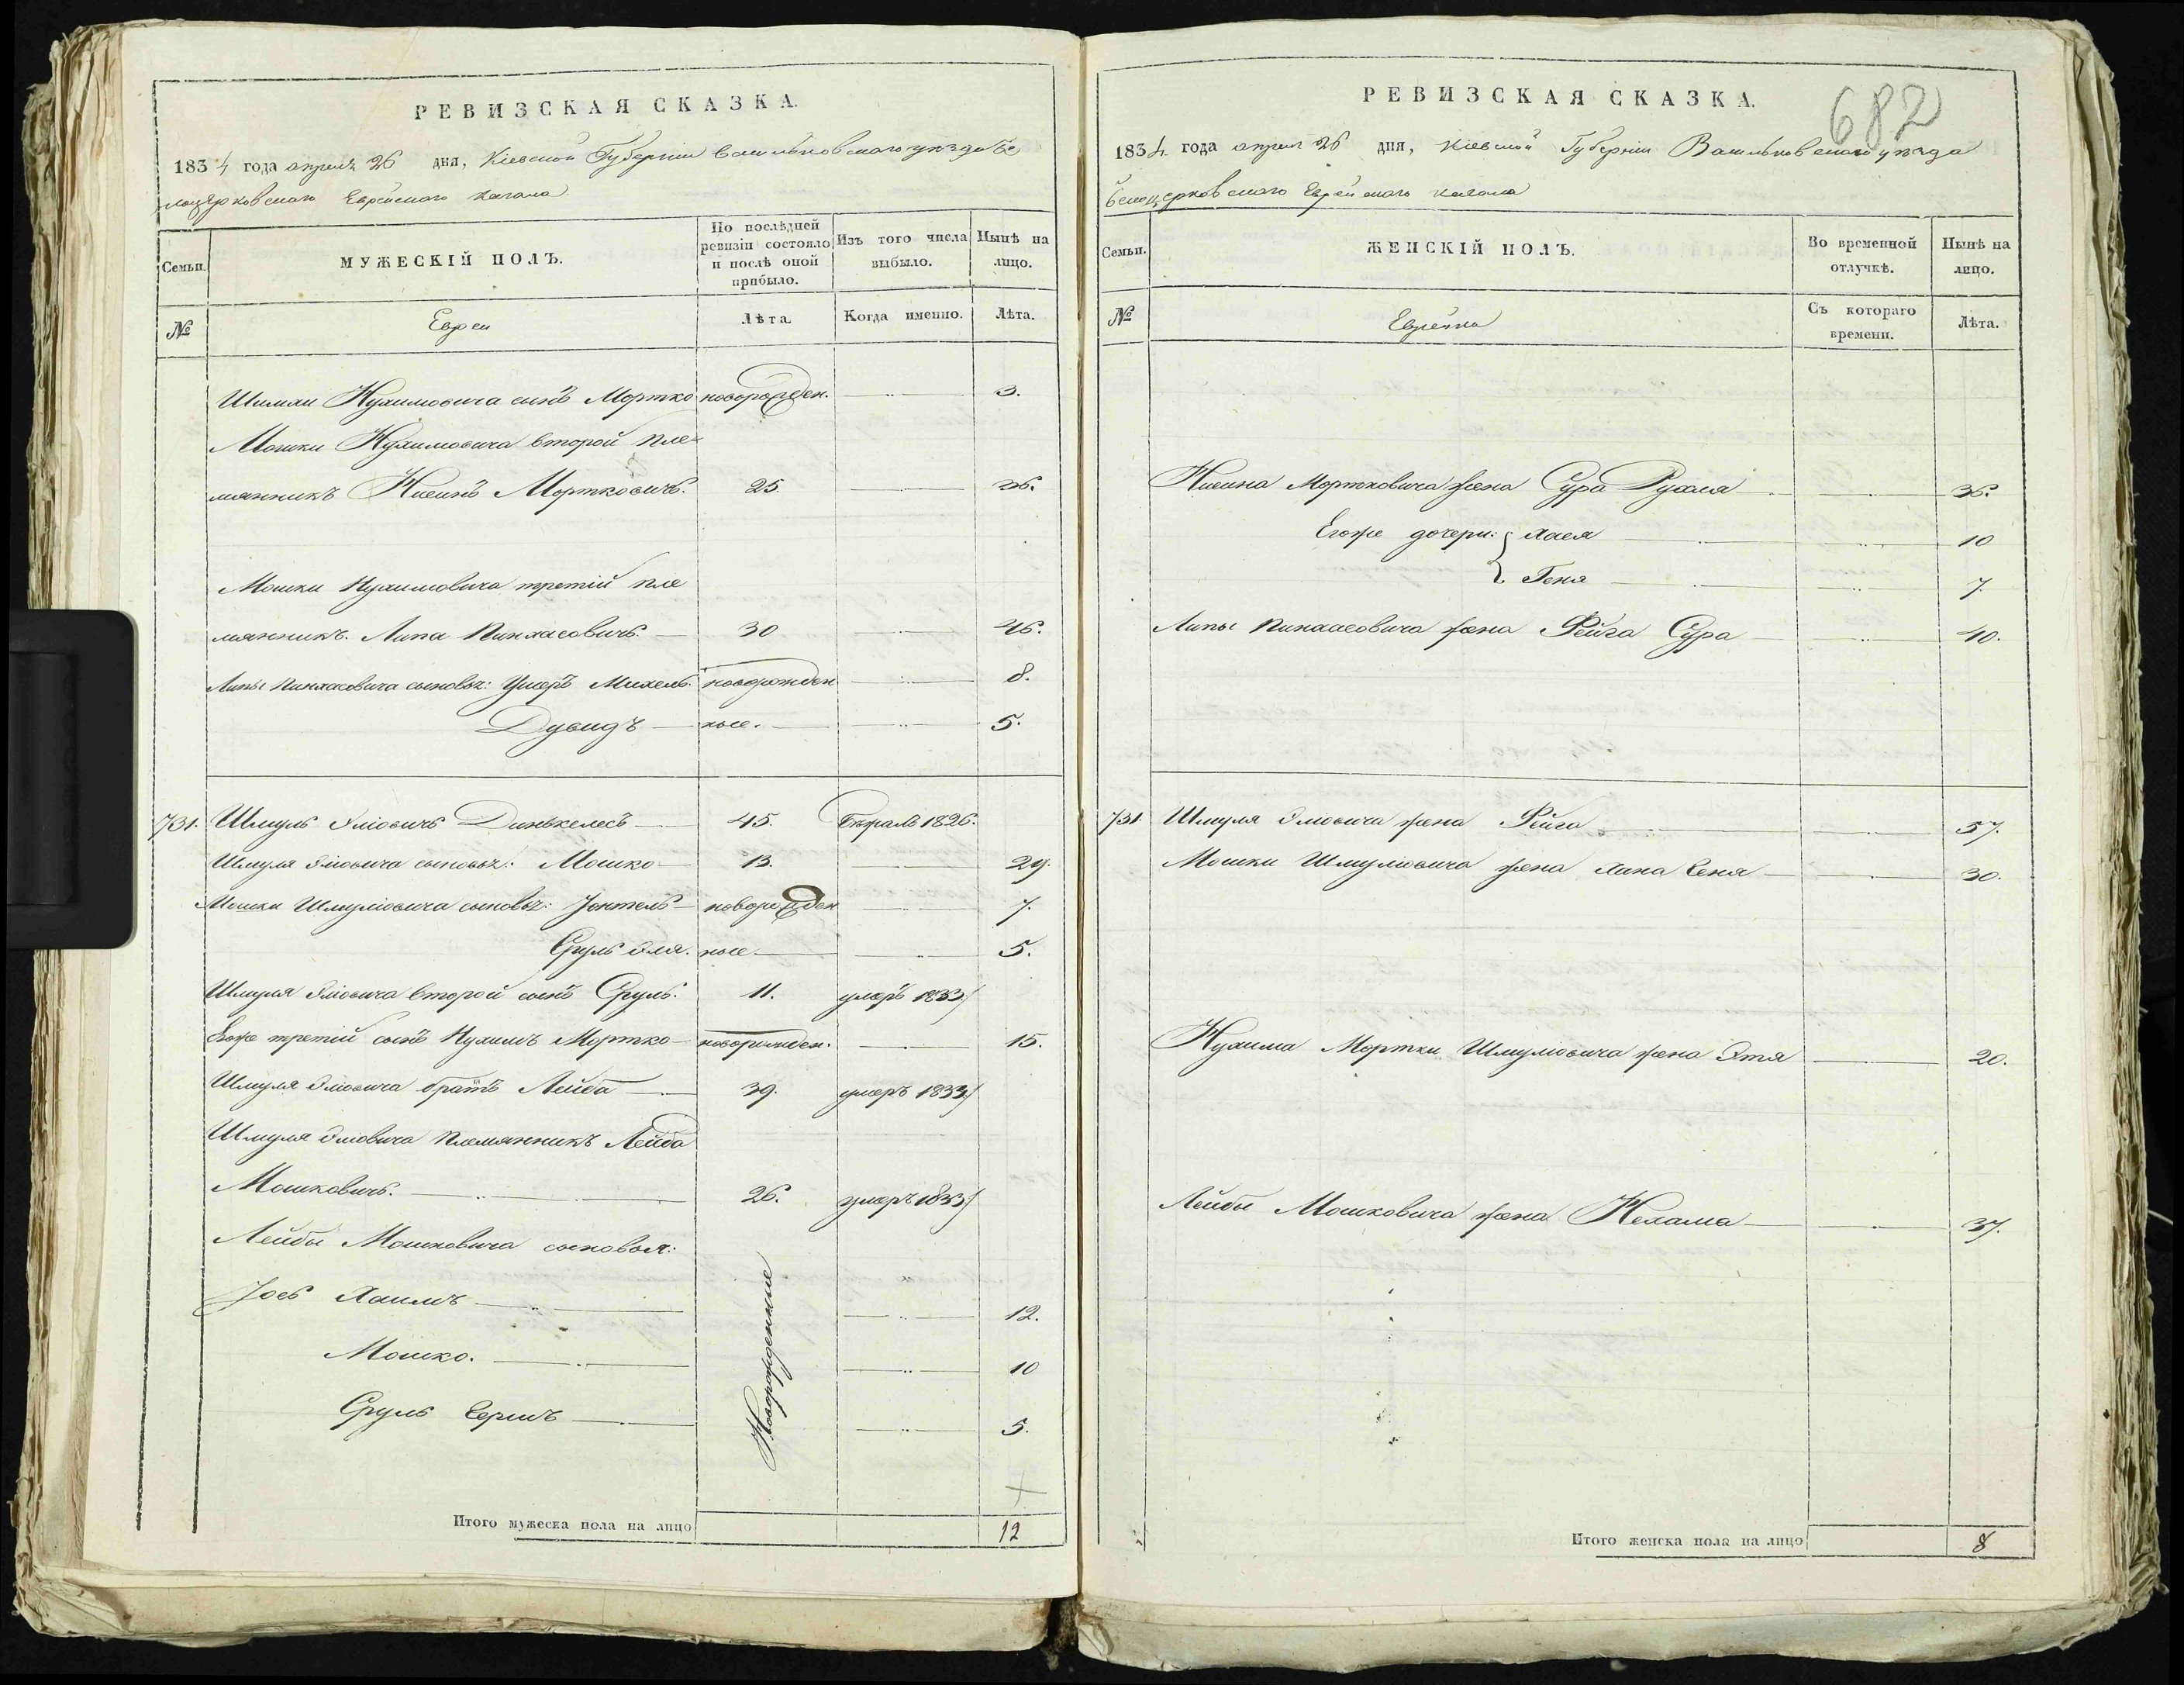 РЕВИЗСКАЯ СКАЗКА.
1834 года апреля 26 дня, Кіевской Губерніи Васильковскаго уѣзда Бе
лоцерковскаго Еврейскаго Кагала
Семьи.
МУЖЕСКІЙ ПОЛЪ.
По послѣдней ревизіи состояло и послѣ оной прибыло.
Изъ того числа выбыло.
Нынѣ на лицо.
№
Евреи
Лѣта.
Когда именно.
Лѣта.
Шимхи Нухимовича сынъ Мортко новорожден. 3.
Мошки Нухимовича второй пле
мянникъ Нисинъ Мортковичъ. 25. 36.
Мошки Нухимовича третій пле
мянникъ Липа Пинхасовичъ. 30 46.
Липы Пинхасовича сыновья: Ушеръ Михель новорожден 8.
Дувидъ ные. 5.
731. Шмуль Эліовичъ Динькелесъ 45. 1826.
Шмуля Эліовича сыновья: Мошко 13. 29.
Мошки Шмуліовича сыновья: новорожден 7.
Сруль Эля. ные 5.
Шмуля Эліовича второй сынъ Сруль. 11. умеръ 1833
Егоже третій сынъ Нухимъ Мортко новорожден. 15.
Шмуля Эліовича братъ Лейба 39. умеръ 1833
Шмуля Эліовича племянникъ Лейба
Мошковичъ. 26. умеръ 1833
Лейбы Мошковича сыновья:
Іось Хаимъ 12.
Мошко. 10
Сруль Бершъ 5.
Новорожденные
Итого мужеска пола на лицо 12
РЕВИЗСКАЯ СКАЗКА.
682
1834 года апреля 26 дня, Кіевской Губерніи Васильковскаго уѣзда
Белоцерковскаго Еврейскаго Кагала
Семьи.
ЖЕНСКІЙ ПОЛЪ.
Во временной отлучкѣ.
Нынѣ на лицо.
№
Еврейки
Съ котораго времени.
Лѣта.
Нисина Мортковича жена Сура Рухля 36.
Егоже дочери: Хася 10
Геня 7.
Липы Пинхасовича жена Фейга Сура 40.
731 Шмуля Эліовича жена Фейга 57.
Мошки Шмуліовича жена Хана Бень 30.
Нухима Мортки Шмуліовича жена Этя 20.
Лейбы Мошковича жена Нехама 37.
Итого женска пола на лицо 8